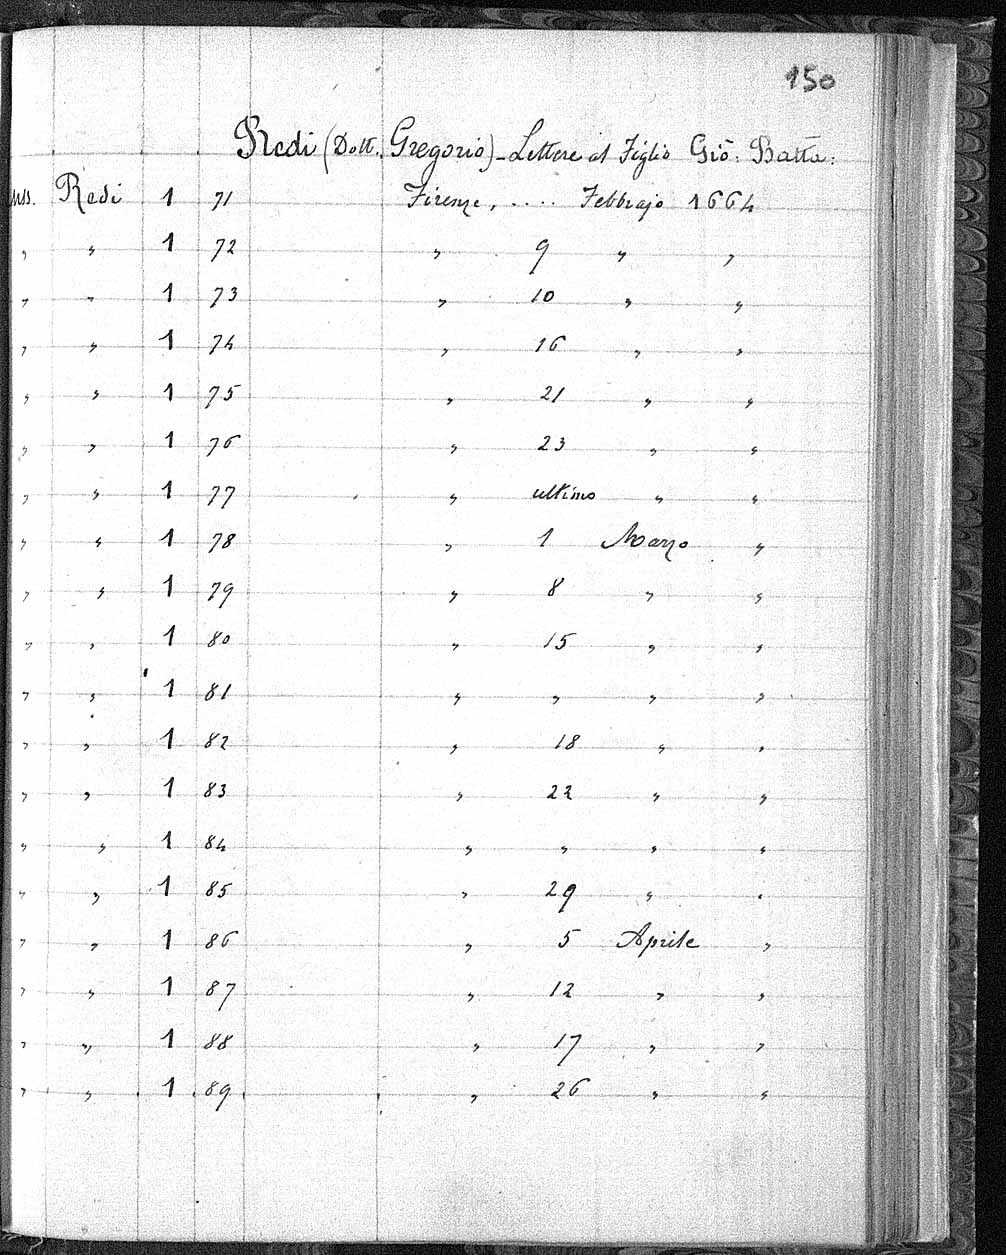 150
Redi (Dott. Gregorio) - Lettere al Figlio Gio: Batta:
mss. Redi 1 71 Firenze, .... Febbrajo 1664
" " 1 72 " 9 " "
" " 1 73 " 10 " "
" " 1 74 " 16 " "
" " 1 75 " 21 " "
" " 1 76 " 23 " "
" " 1 77 " ultimo " "
" " 1 78 " 1 Marzo "
" " 1 79 " 8 " "
" " 1 80 " 15 " "
" " 1 81 " " " "
" " 1 82 " 18 " "
" " 1 83 " 22 " "
" " 1 84 " " " "
" " 1 85 " 29 " "
" " 1 86 " 5 Aprile "
" " 1 87 " 12 " "
" " 1 88 " 17 " "
" " 1 89 " 26 " "